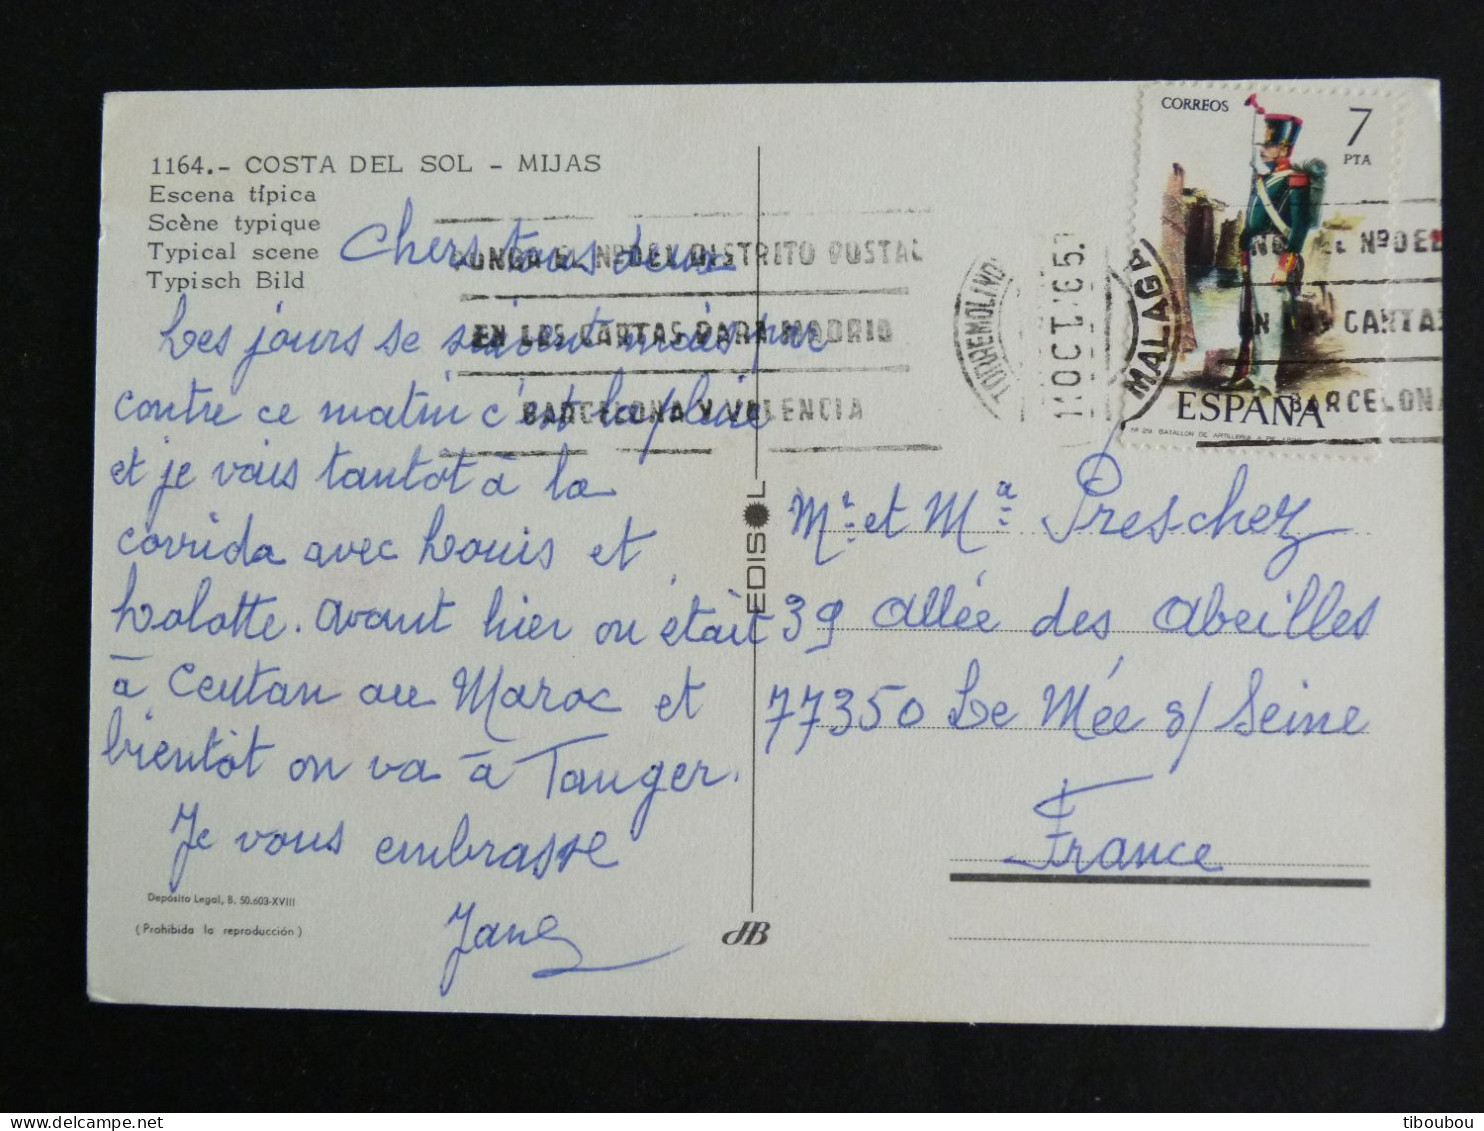 1164.- COSTA DEL SOL - MIJAS
Escena típica
Scène typique
Typical scene
Typisch Bild
Chers tous deux
Les jours se suivent mais par
contre ce matin c'est la pluie
et je vais tantot à la
corrida avec Louis et
Lolotte. Avant hier on était
à Ceutan au Maroc et
bientôt on va à Tanger.
Je vous embrasse
Jane
Depósito Legal, B. 50.603-XVIII
(Prohibida la reproducción)
EDISOL
JB
PONGA EL Nº DEL DISTRITO POSTAL
EN LAS CARTAS PARA MADRID
BARCELONA Y VALENCIA
TORREMOLINOS
11 OCT. 76
MALAGA
CORREOS
7
PTA
ESPAÑA
Nº DEL
EN LAS CARTAS
BARCELONA
Mr et Ma Preschez
39 Allée des Abeilles
77350 Le Mée s/ Seine
France
tiboubou